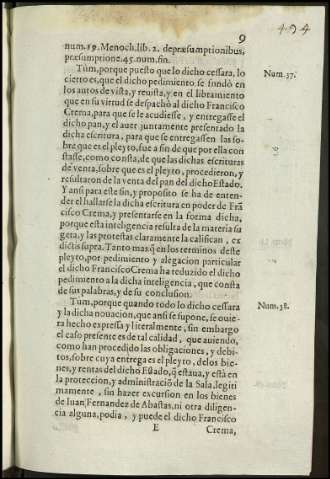 494
9
num.19.Menoch.lib. 2. depræsumptionibus,
præsumptione.45.num.fin.
Tùm,porque puesto que lo dicho cessara, lo
cierto es,que el dicho pedimiento se fundò en
los autos de vista, y reuista,y en el libramiento
que en su virtud se despachò al dicho Francisco
Crema,para que se le acudiesse, y entregasse el
dicho pan,y el auer juntamente presentado la
dicha escritura, para que se entregassen las so-
bre que es el pleyto,fue a fin de que por ella con
stasse, como consta,de que las dichas escrituras
de venta,sobre que es el pleyto, procedieron, y
resultaron de la venta del pan del dicho Estado.
Y ansi para este fin,y proposito se ha de enten-
der el hallarse la dicha escritura en poder de Frã
cisco Crema,y presentarse en la forma dicha,
porque esta inteligencia resulta de la materia su
geta, y las protestas claramente la califican, ex
dictis supra.Tanto mas q̃ en los terminos deste
pleyto,por pedimiento y alegacion particular
el dicho Francisco Crema ha reduzido el dicho
pedimiento a la dicha inteligencia, que consta
de sus palabras, y de su conclusion.
Tum,porque quando todo lo dicho cessara
y la dicha nouacion, que ansi se supone, se ouie-
ra hecho expressa y literalmente, sin embargo
el caso presente es de tal calidad, que auiendo,
como han procedido las obligaciones, y debi-
tos,sobre cuya entrega es el pleyto, de los bie-
nes,y rentas del dicho Estado,q̃ estaua,y està en
la proteccion,y administraciõ de la Sala,legiti
mamente, sin hazer excursion en los bienes
de Iuan Fernandez de Abastas,ni otra diligen-
cia alguna,podia, y puede el dicho Francisco
E
Crema,
Num.37.
Num.38.